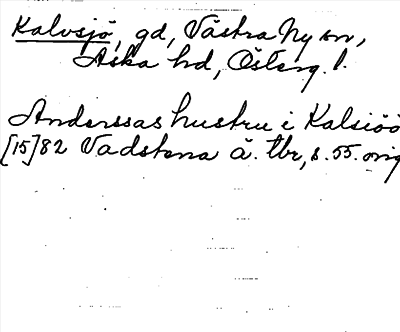 Kalvsjö, gd, Västra Ny sn,
Aska hd, Österg. l.
Anderssas hustru i Kalsiöö
[15]82 Vadstena ä. tbr, s. 55. orig